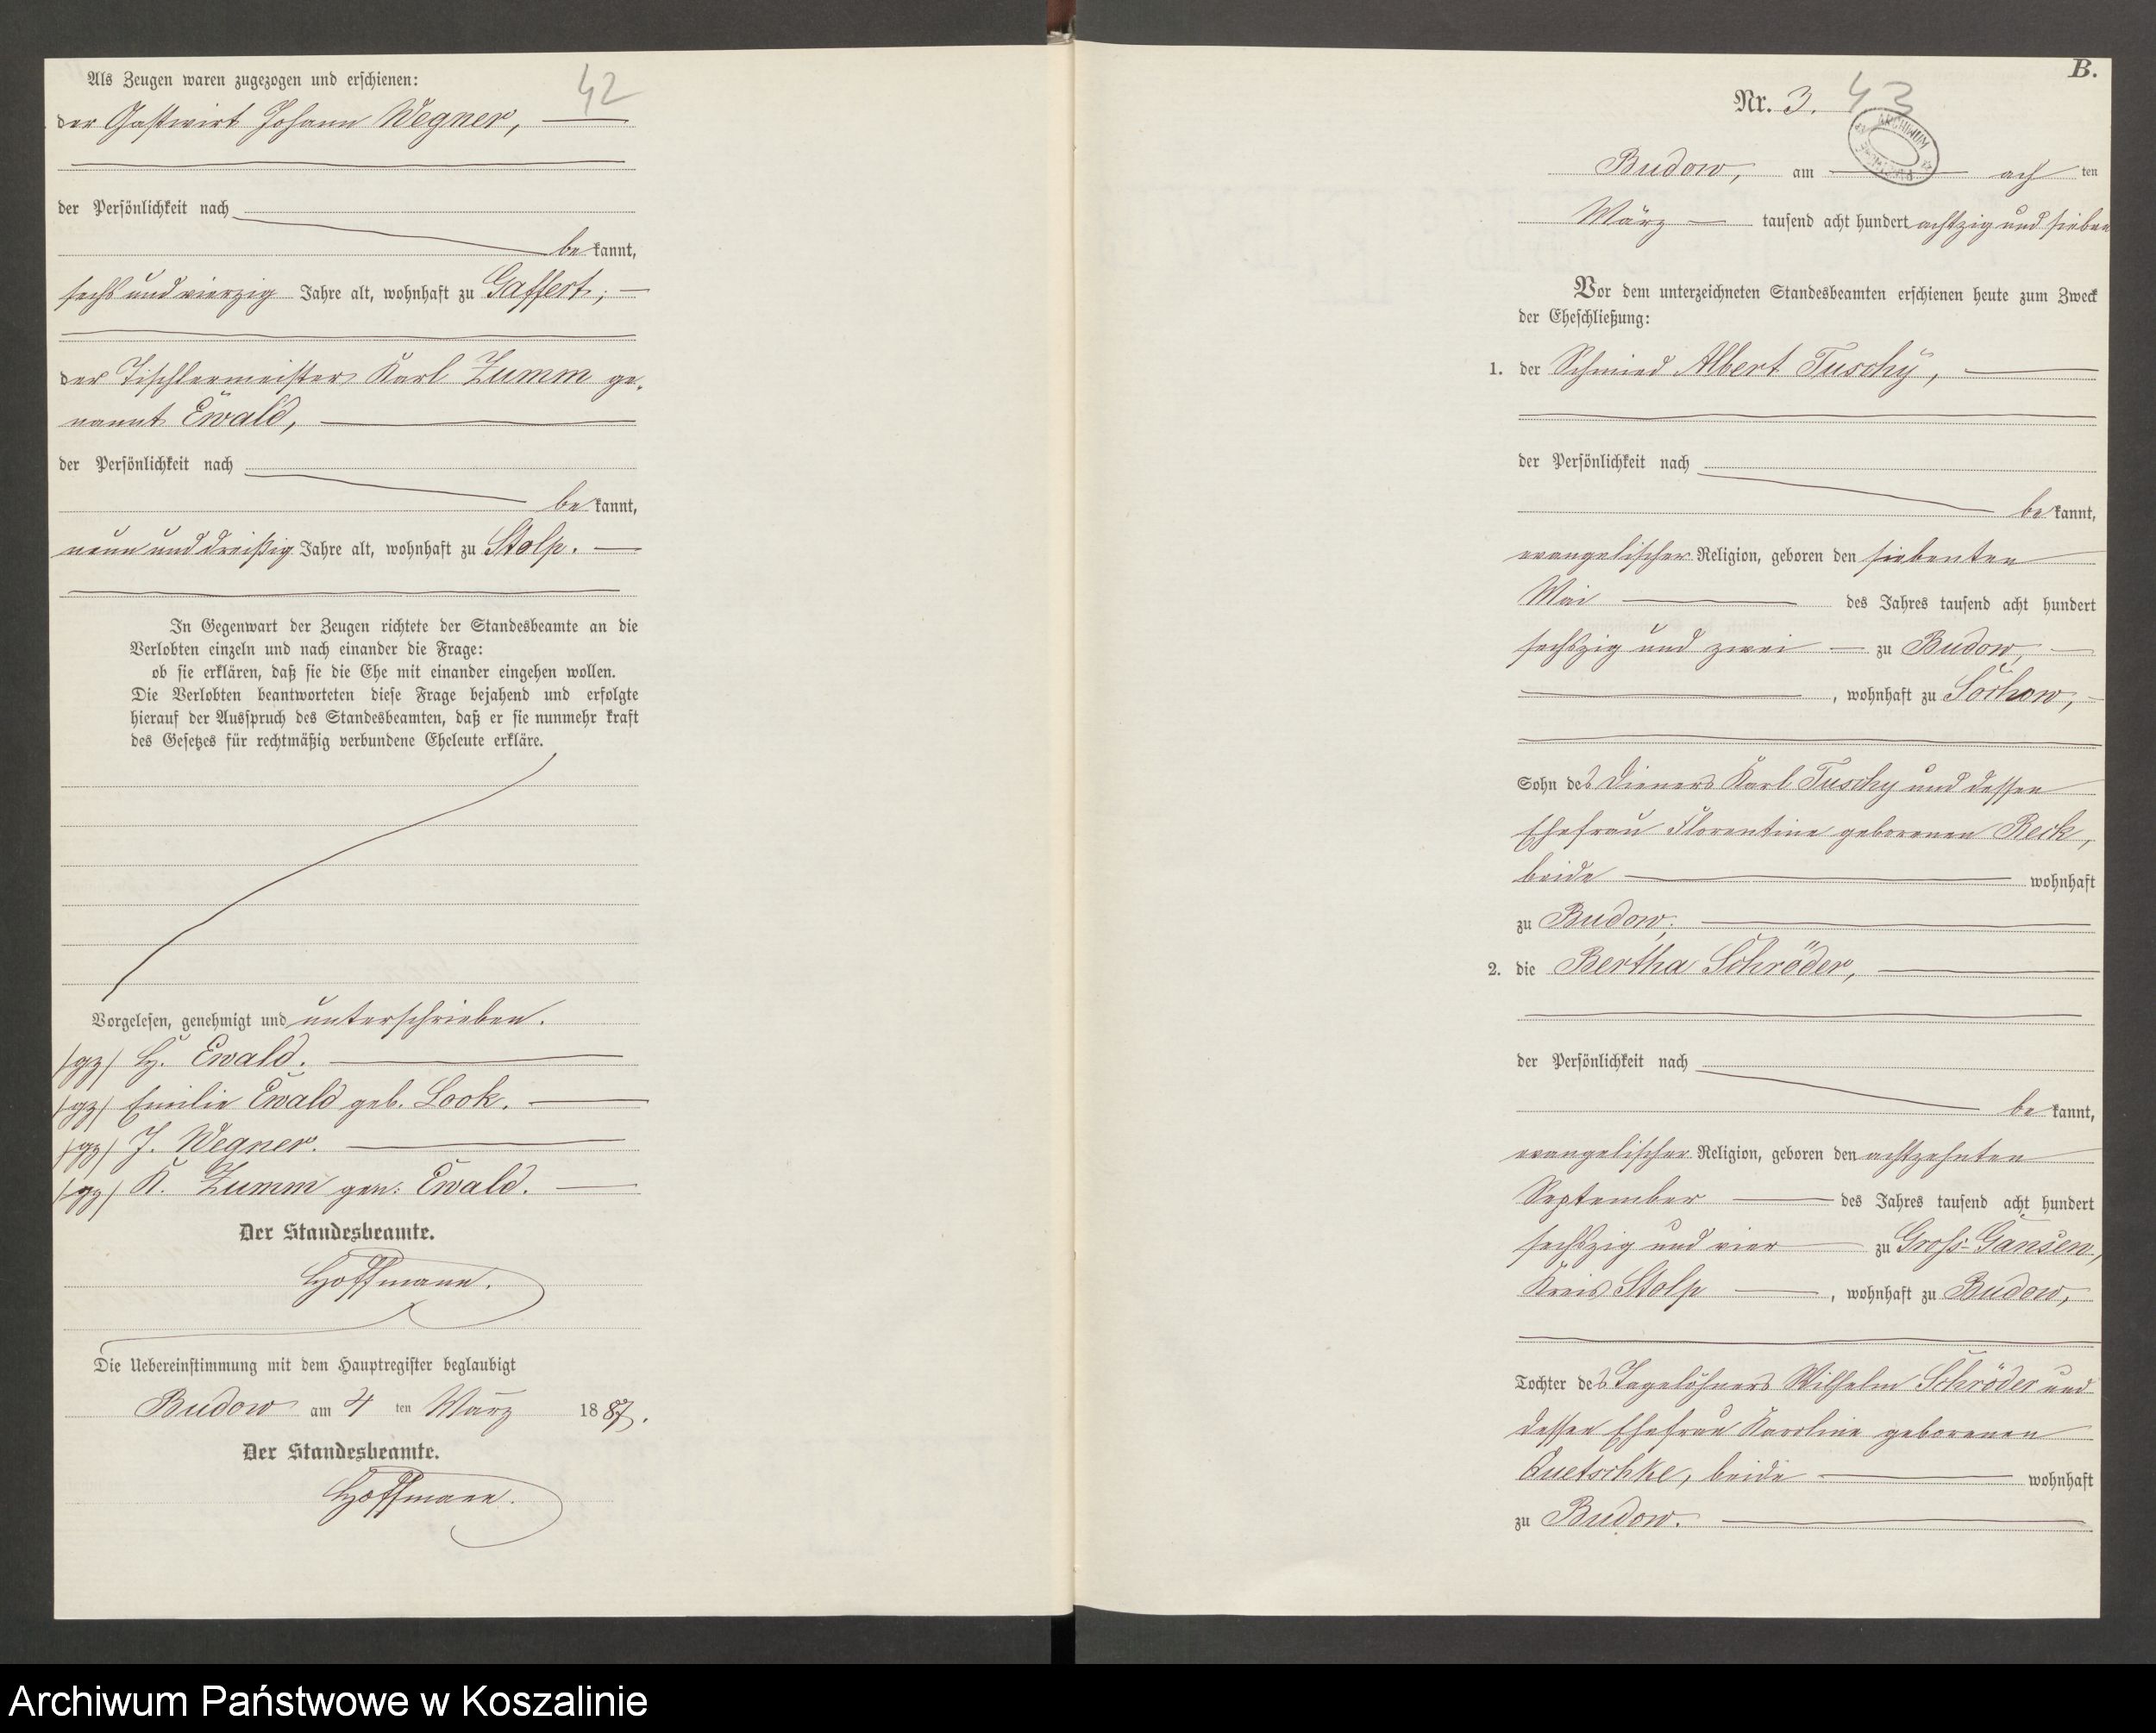 Als Zeugen waren zugezogen und erschienen:
42
der Gastwirt Johann Wegner,
der Persönlichkeit nach
be kannt,
sechs und vierzig Jahre alt, wohnhaft zu Gaffert;
der Tischlermeister Karl Zumm ge-
nannt Ewald,
der Persönlichkeit nach
be kannt,
neun und dreißig Jahre alt, wohnhaft zu Stolp.
In Gegenwart der Zeugen richtete der Standesbeamte an die
Verlobten einzeln und nach einander die Frage:
ob sie erklären, daß sie die Ehe mit einander eingehen wollen.
Die Verlobten beantworteten diese Frage bejahend und erfolgte
hierauf der Ausspruch des Standesbeamten, daß er sie nunmehr kraft
des Gesetzes für rechtmäßig verbundene Eheleute erkläre.
Vorgelesen, genehmigt und unterschrieben.
/gz/ H. Ewald.
/gz/ Emilie Ewald geb. Look.
/gz/ J. Wegner.
/gz/ K. Zumm gen: Ewald.
Der Standesbeamte.
Hoffmann.
Die Uebereinstimmung mit dem Hauptregister beglaubigt
Budow am 4 ten März 1887.
Der Standesbeamte.
Hoffmann.
B.
Nr. 3. 43
ARCHIWUM
Budow, am ach ten
März tausend acht hundert achtzig und sieben
Vor dem unterzeichneten Standesbeamten erschienen heute zum Zweck
der Eheschließung:
1. der Schmied Albert Tuschy,
der Persönlichkeit nach
be kannt,
evangelischer Religion, geboren den siebenten
Mai des Jahres tausend acht hundert
sechszig und zwei zu Budow,
, wohnhaft zu Sochow,
Sohn des Dieners Karl Tuschy und dessen
Ehefrau Florentine geborenen Reck,
beide wohnhaft
zu Budow;
2. die Bertha Schröder,
der Persönlichkeit nach
be kannt,
evangelischer Religion, geboren den achtzehnten
September des Jahres tausend acht hundert
sechszig und vier zu Groß-Gansen,
Kreis Stolp , wohnhaft zu Budow,
Tochter des Tagelöhners Wilhelm Schröder und
dessen Ehefrau Karoline geborenen
Quetschke, beide wohnhaft
zu Budow.
Archiwum Państwowe w Koszalinie